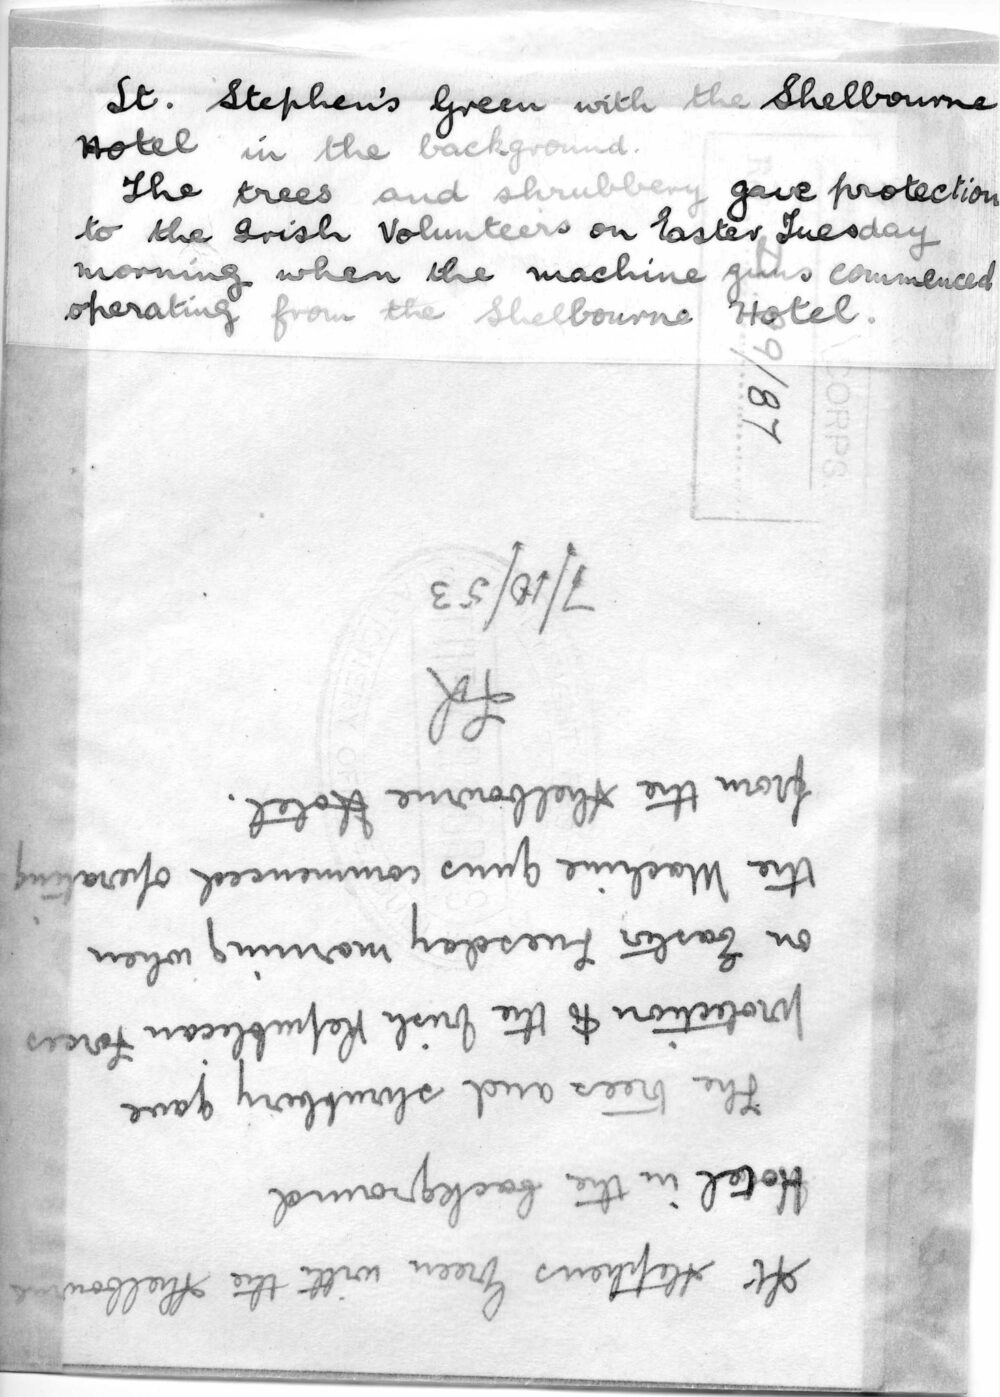 St. Stephen's Green with the Shelbourne
Hotel in the background.
The trees and shrubbery gave protection
to the Irish Volunteers on Easter Tuesday
morning when the machine guns commenced
operating from the Shelbourne Hotel.
CORPS
89/87
St Stephens Green with the Shelbourne
Hotel in the background
The trees and shrubbery gave
protection to the Irish Republican Forces
on Easter Tuesday morning when
the Machine guns commenced operating
from the Shelbourne Hotel.
7/10/53